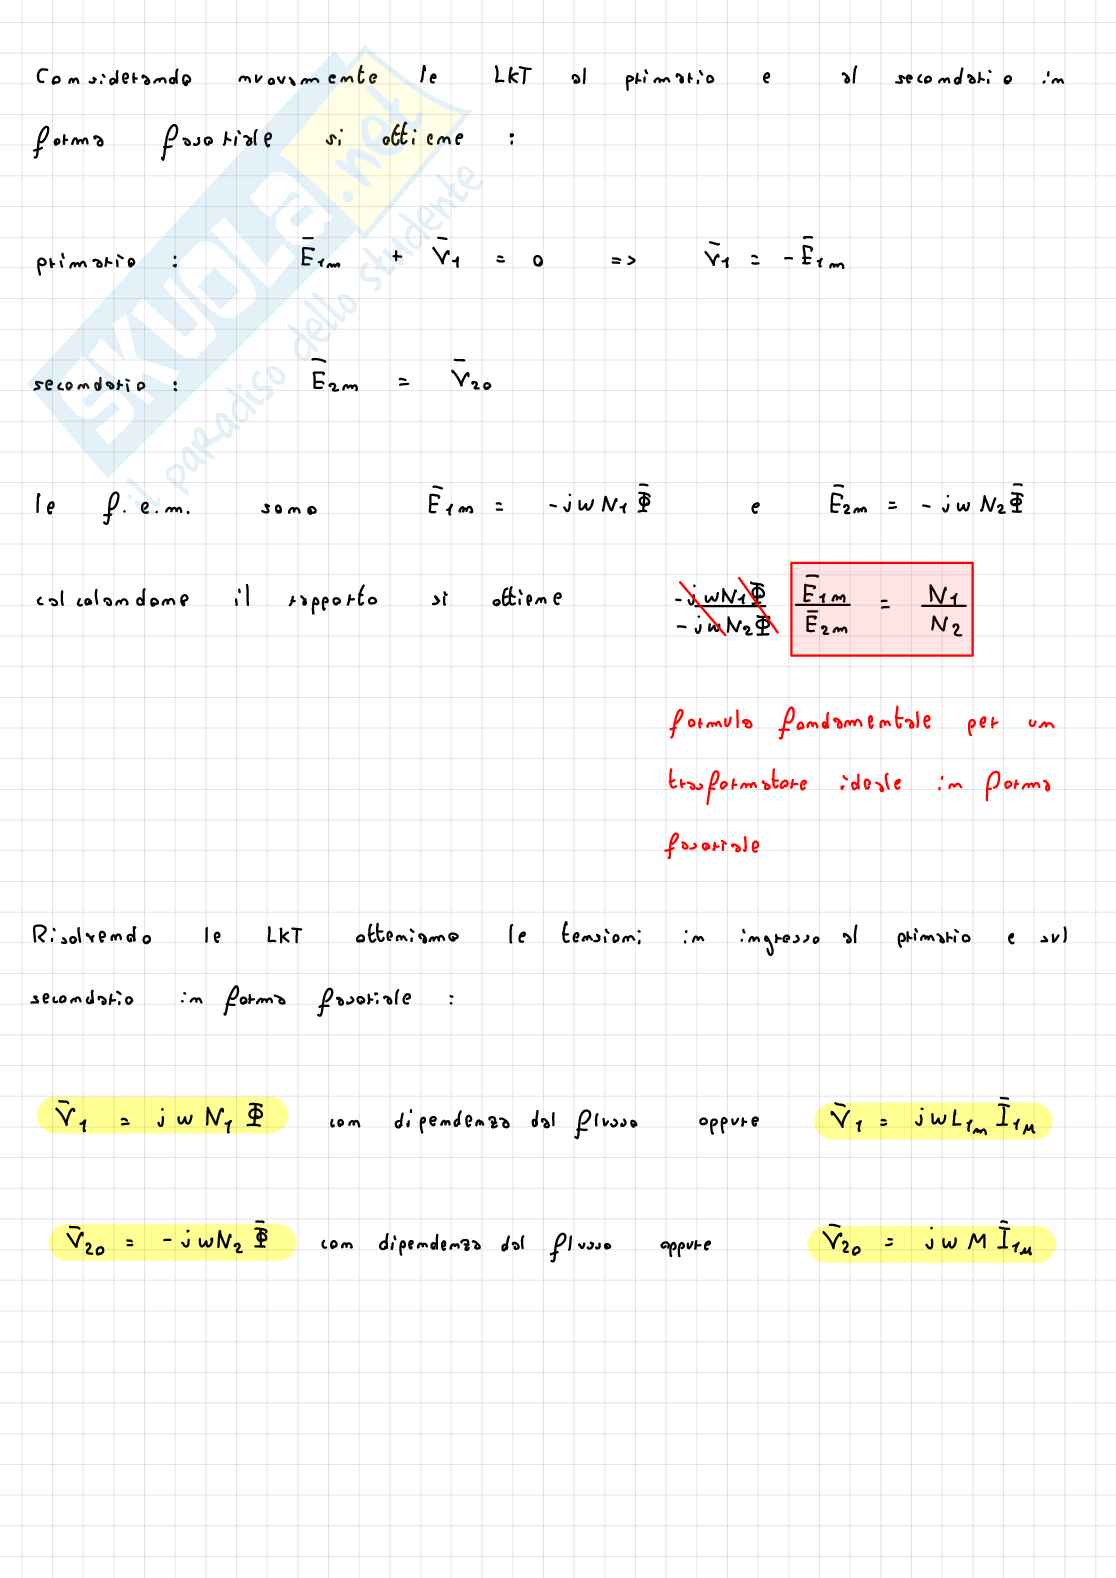 Considerando nuovamente le LKT al primario e al secondario in
forma fasoriale si ottiene :
primario : E̅₁ₘ + V̅₁ = 0 => V̅₁ = - E̅₁ₘ
secondario : E̅₂ₘ = V̅₂₀
le f.e.m. sono E̅₁ₘ = -jωN₁Φ̅ e E̅₂ₘ = -jωN₂Φ̅
calcolandone il rapporto si ottiene -jωN₁Φ̅ / -jωN₂Φ̅ E̅₁ₘ / E̅₂ₘ = N₁ / N₂
formula fondamentale per un
trasformatore ideale in forma
fasoriale
Risolvendo le LKT otteniamo le tensioni in ingresso al primario e sul
secondario in forma fasoriale :
V̅₁ = jωN₁Φ̅ con dipendenza dal flusso oppure V̅₁ = jωL₁ₘ I̅₁μ
V̅₂₀ = -jωN₂Φ̅ con dipendenza dal flusso oppure V̅₂₀ = jωM I̅₁μ
SKUOLA.net
il paradiso dello studente